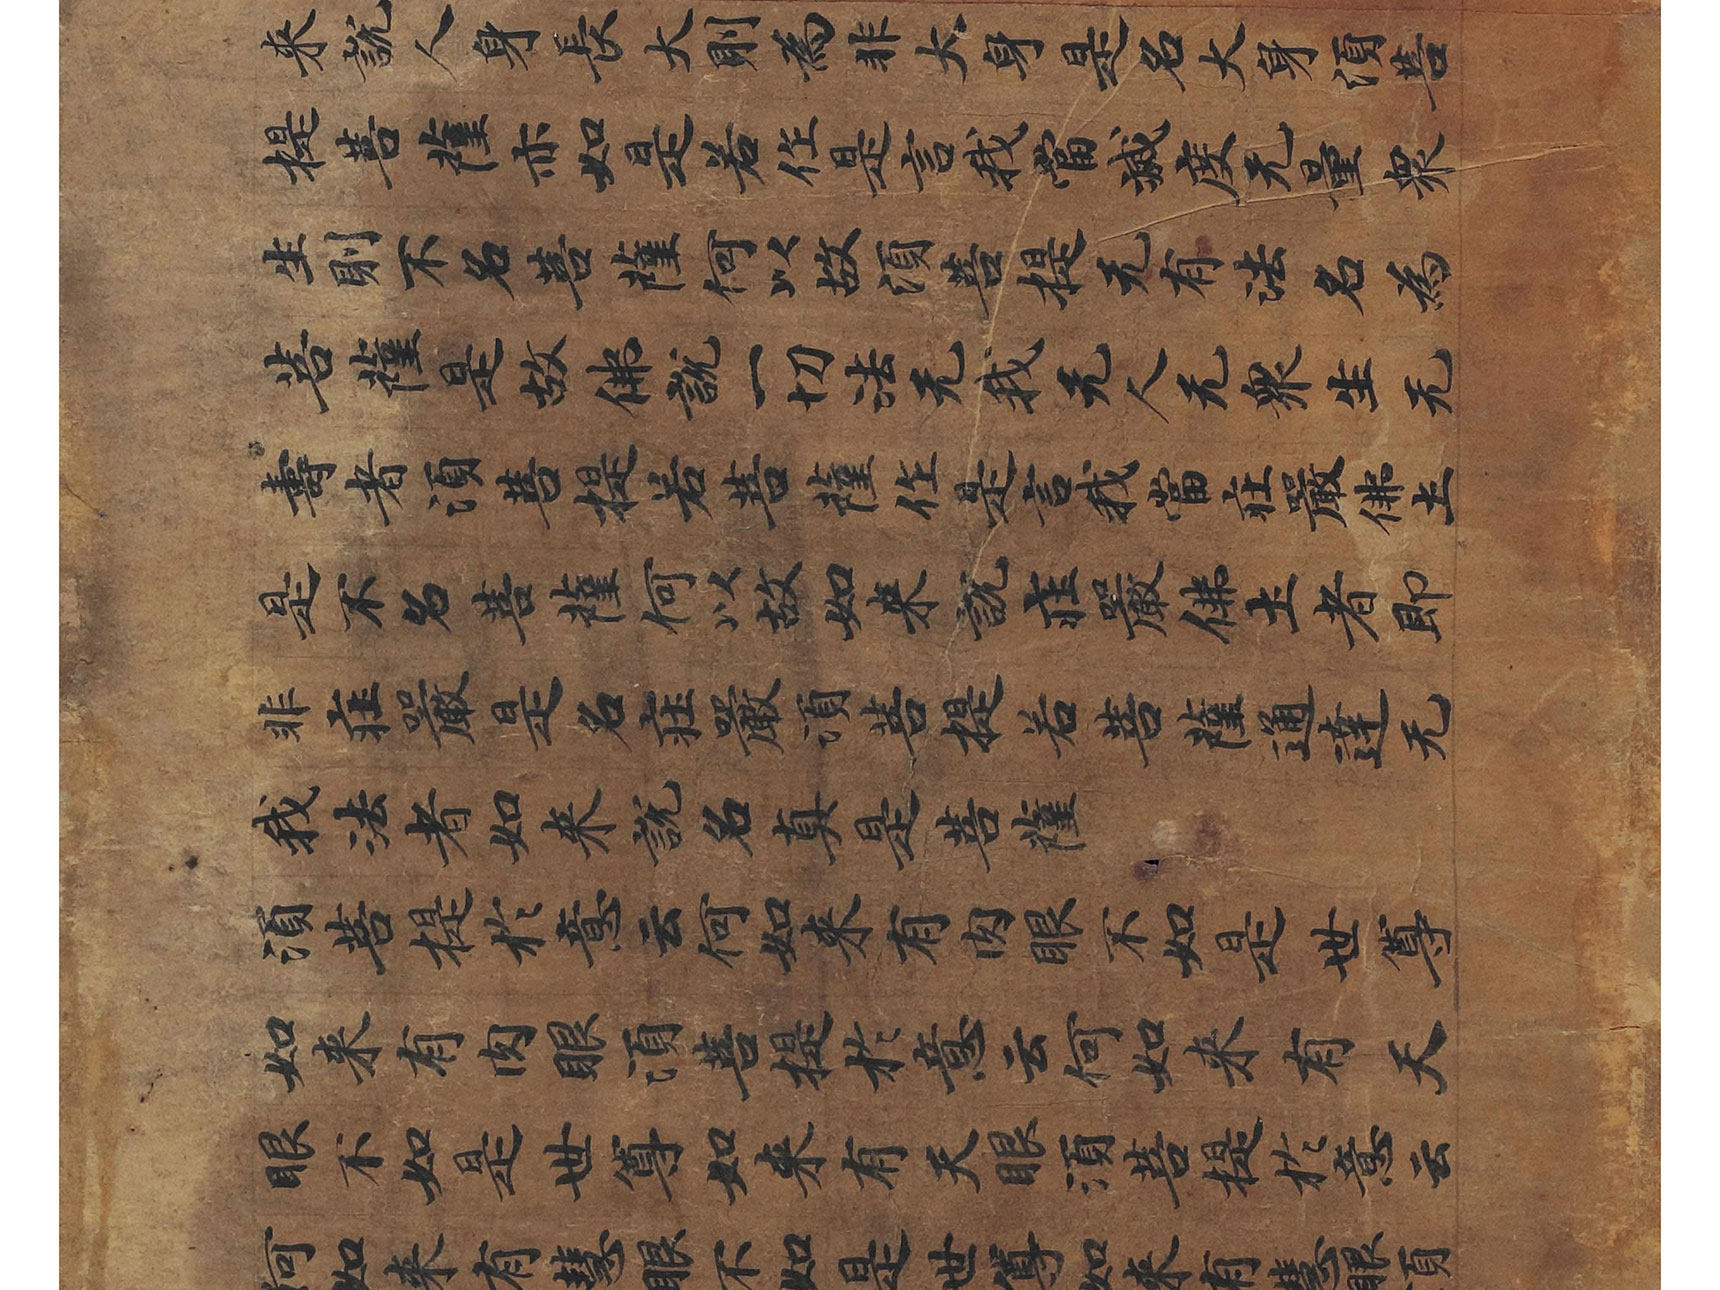 来說人身長大則為非大身是名大身須菩
提菩薩亦如是若作是言我當滅度无量衆
生則不名菩薩何以故須菩提无有法名為
菩薩是故佛說一切法无我无人无衆生无
壽者須菩提若菩薩作是言我當莊嚴佛土
是不名菩薩何以故如来說莊嚴佛土者即
非莊嚴是名莊嚴須菩提若菩薩通達无
我法者如来說名真是菩薩
須菩提於意云何如来有肉眼不如是世尊
如来有肉眼須菩提於意云何如来有天
眼不如是世尊如来有天眼須菩提於意云
何如来有慧眼不如是世尊如来有慧眼須